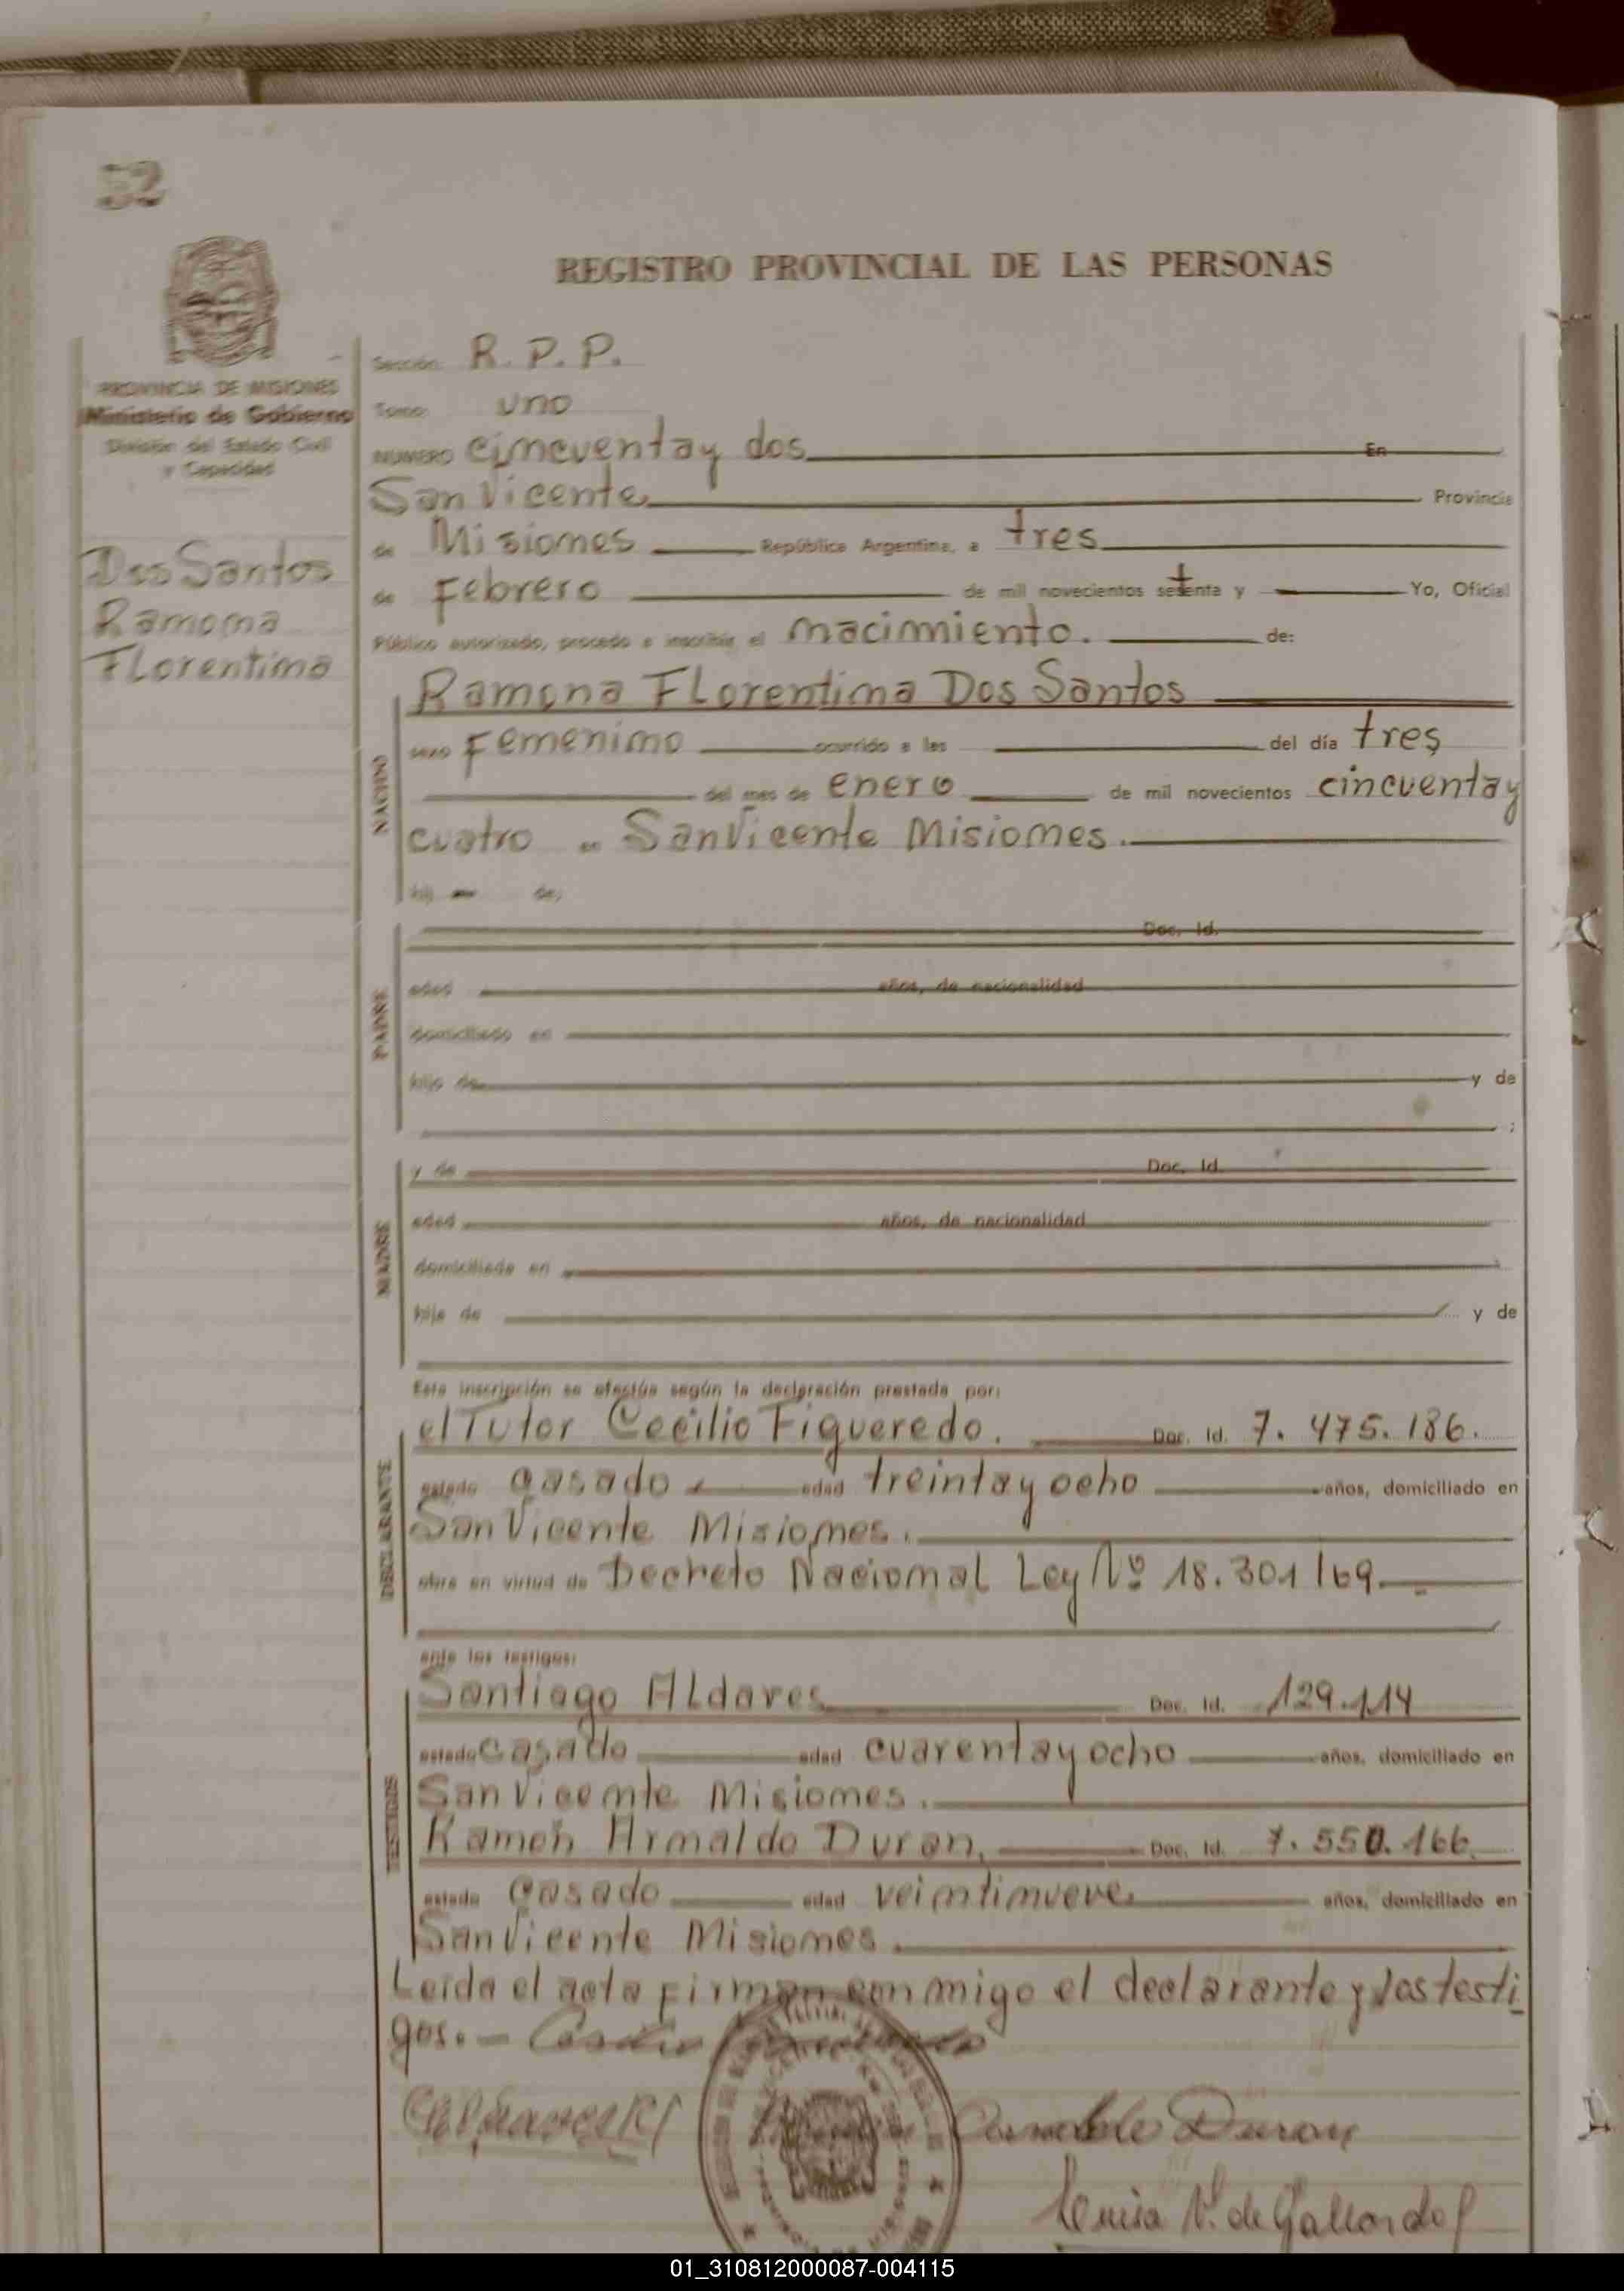 52
REGISTRO PROVINCIAL DE LAS PERSONAS
PROVINCIA DE MISIONES
Ministerio de Gobierno
División del Estado Civil
y Capacidad
Dos Santos
Ramona
Florentina
Sección R. P. P.
Tomo uno
NUMERO cincuenta y dos En
San Vicente Provincia
de Misiones República Argentina, a tres
de Febrero de mil novecientos setenta y Yo, Oficial
Público autorizado, procedo a inscribir el nacimiento. de:
NACIDO
Ramona Florentina Dos Santos
sexo Femenino ocurrido a las del día tres
del mes de enero de mil novecientos cincuenta y
cuatro en San Vicente Misiones.
hij de:
PADRE
Doc. Id.
edad años, de nacionalidad
domiciliado en
hijo de y de
;
MADRE
y de Doc. Id.
edad años, de nacionalidad
domiciliada en
hija de y de
Esta inscripción se efectúa según la declaración prestada por:
DECLARANTE
el Tutor Cecilio Figueredo. Doc. Id. 7. 475. 186.
estado casado edad treinta y ocho años, domiciliado en
San Vicente Misiones.
obra en virtud de Decreto Nacional Ley Nº 18.301/69.
ante los testigos:
TESTIGOS
Santiago Aldaves Doc. Id. 129.114
estado casado edad cuarenta y ocho años, domiciliado en
San Vicente Misiones.
Ramón Arnaldo Duran, Doc. Id. 7. 550. 166.
estado casado edad veintinueve años, domiciliado en
San Vicente Misiones.
Leida el acta firman conmigo el declarante y los testi_
gos. -
Arnaldo Duran
Luisa V. de Gallardo
01_310812000087-004115